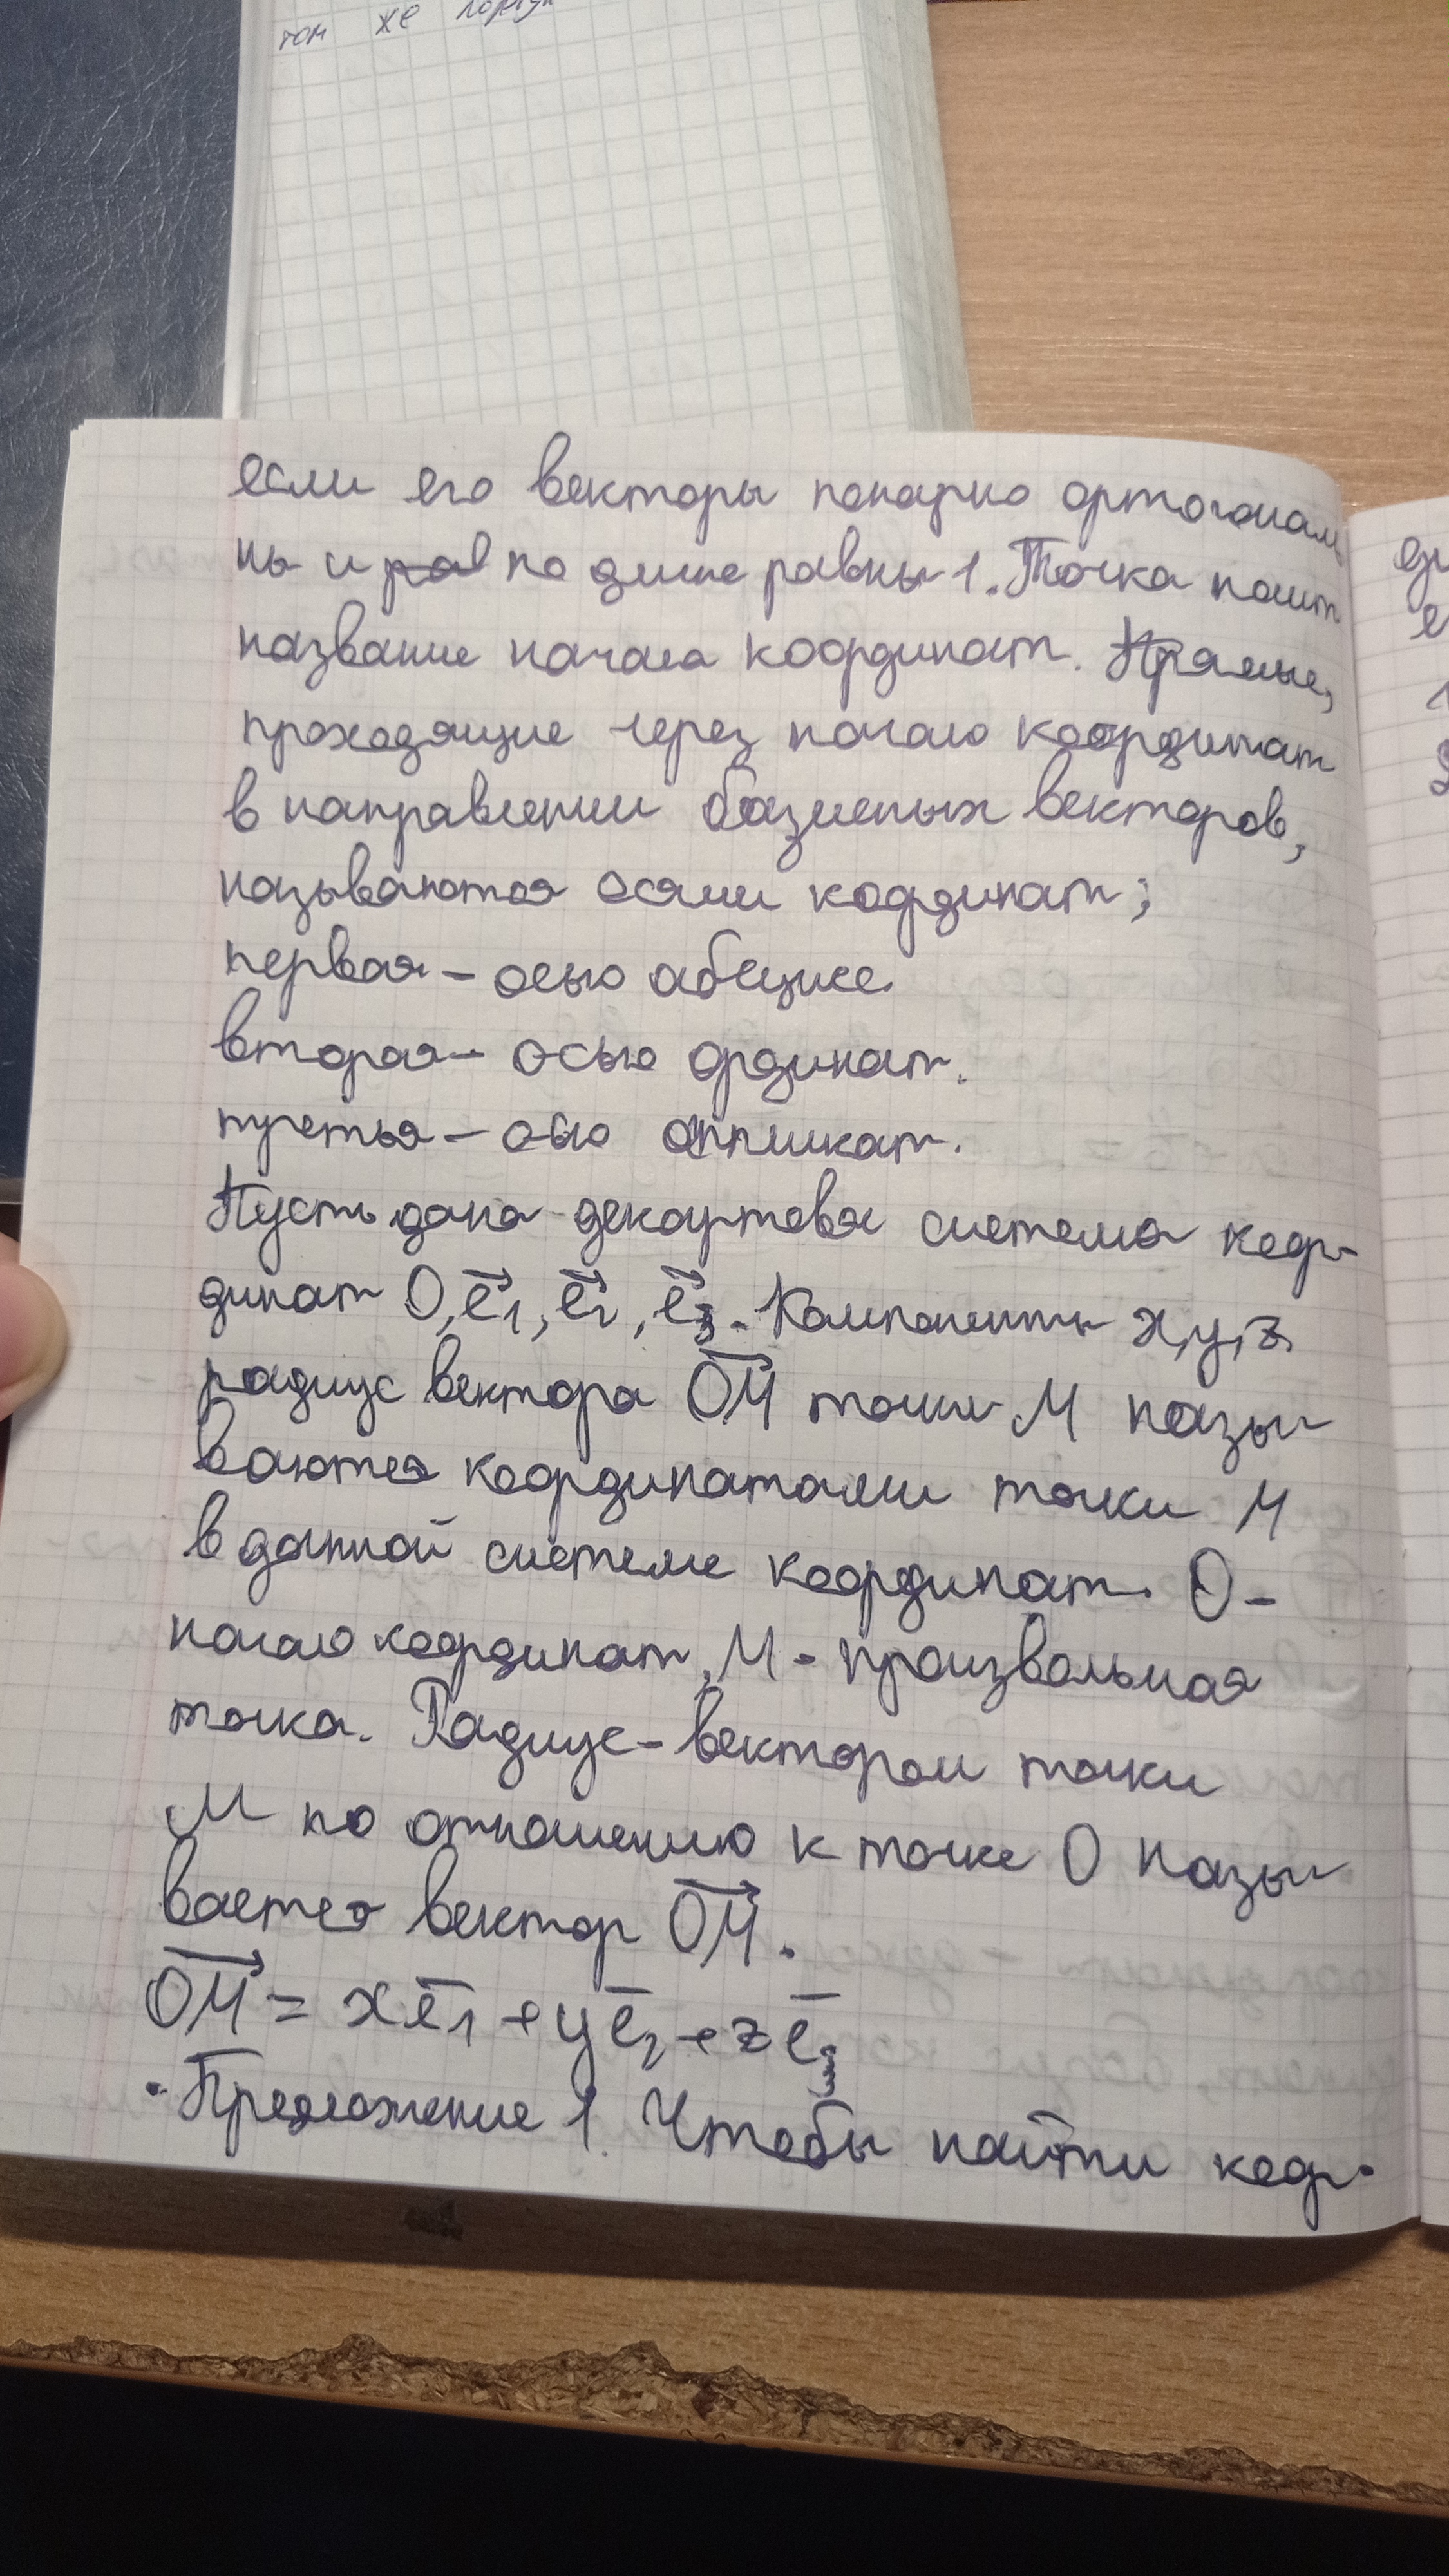 том же
если его векторы попарно ортогонал
ны и рав по длине равны 1. Точка носит
название начала координат. Прямые,
проходящие через начало координат
в направлении базисных векторов,
называются осями координат;
первая – осью абсцисс.
вторая – осью ординат.
третья – осью аппликат.
Пусть дана декартова система коор-
динат O, e1, e2, e3. Компоненты x, y, z
радиус вектора OM точки M назы
ваются координатами точки M
в данной системе координат. O –
начало координат, M - произвольная
точка. Радиус-вектором точки
M по отношению к точке O назы
вается вектор OM.
OM = xe1 + ye2 + ze3
· Предложение 1. Чтобы найти коор-